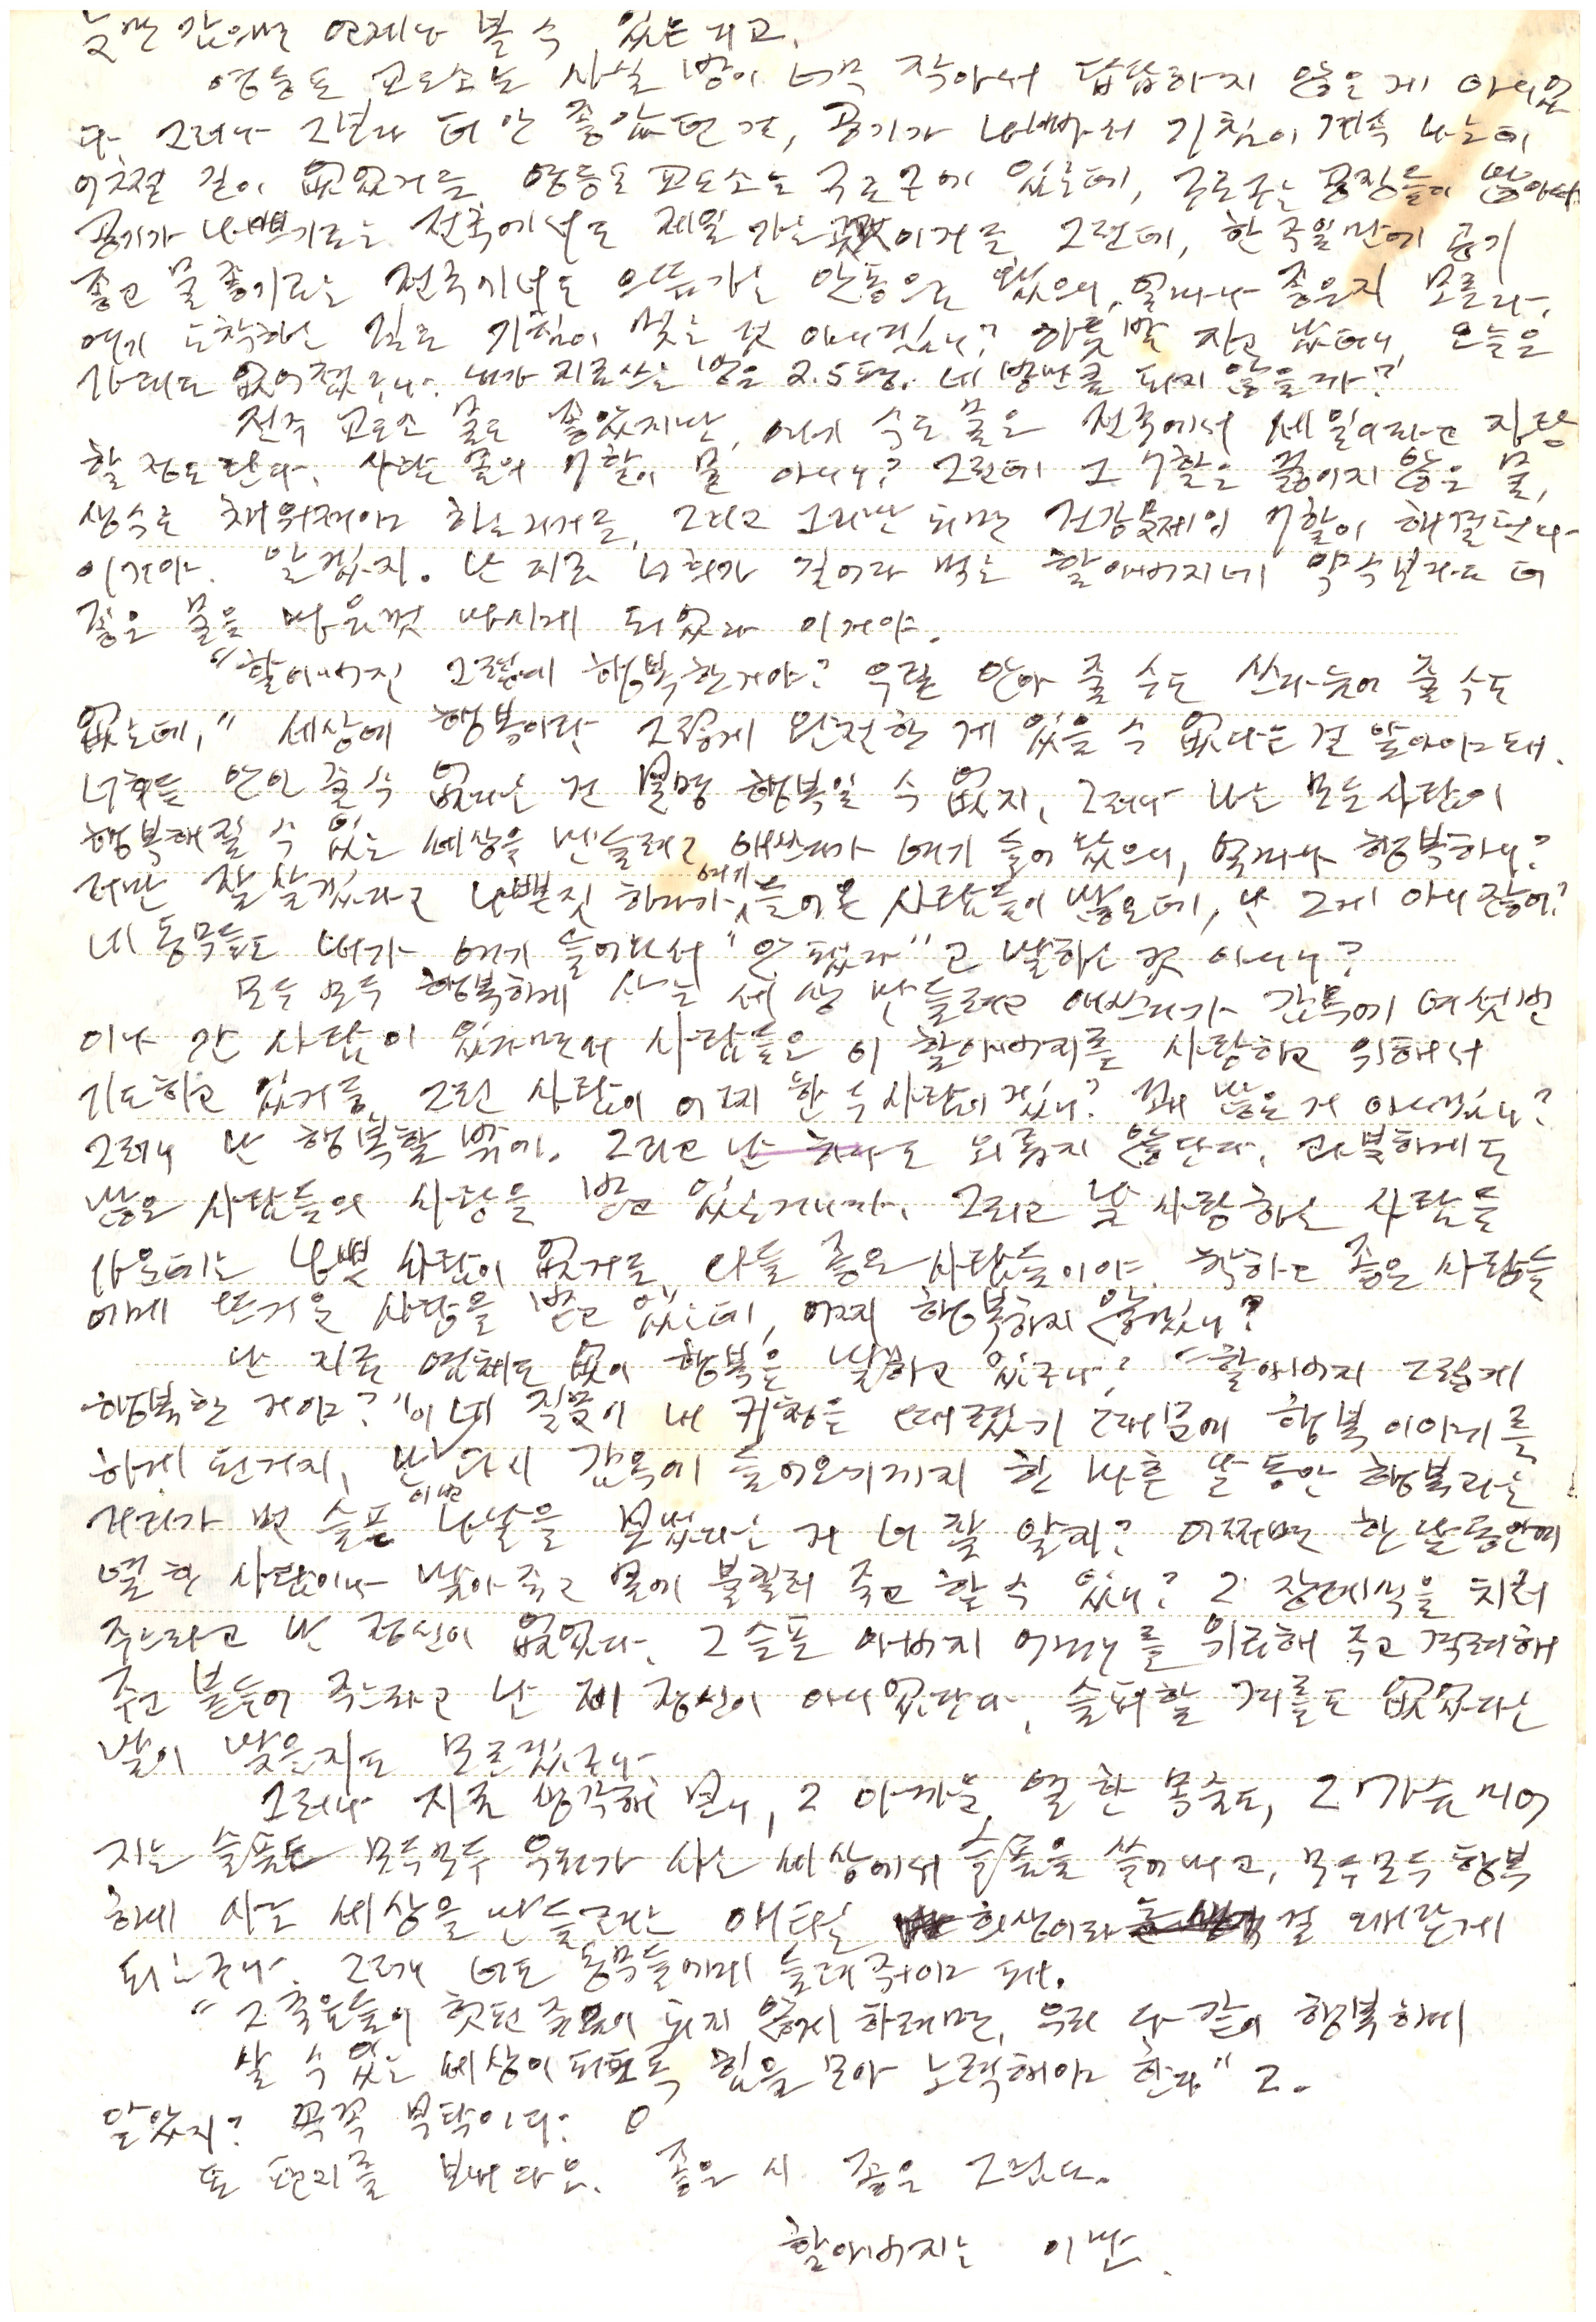 눈만 감으면 언제나 볼 수 있는 거고.
영등포 교도소는 사실 방이 너무 작아서 답답하지 않은 게 아니었
다. 그러나 그보다 더 안 좋았던 건, 공기가 나빠서 기침이 계속 나는데
어쩔 길이 없었거든. 영등포 교도소는 구로구에 있는데, 구로구는 공장들이 많아서
공기가 나쁘기로는 전국에서도 제일 가는 곳이거든. 그런데, 한 주일만에 공기
좋고 물 좋기로는 전국에서도 으뜸가는 안동으로 왔으니, 얼마나 좋은지 모른다.
여기 도착하는 길로 기침이 멎는 것 아니겠니? 하룻밤 자고 났더니, 오늘은
가래도 없어졌구나. 내가 지금 쓰는 방은 2.5평. 네 방만큼 되지 않을까?
전주 교도소 물도 좋았지만, 여기 수도물은 전국에서 제일이라고 자랑
할 정도란다. 사람 몸의 7할이 물 아니니? 그런데 그 7할은 끓이지 않은 물,
생수로 채워져야 하는거거든. 그리고 그러면 되면 건강문제의 7할이 해결된다
이거야. 알겠지. 난 지금 너희가 길어다 먹는 할아버지네 약수보다도 더
좋은 물을 마음껏 마시게 되었다 이거야.
"할아버진 그렇게 행복한거야? 우릴 안아 줄 수도 쓰다듬어 줄 수도
없는데," 세상에 행복이란 그렇게 완전한 게 있을 수 없다는 걸 알아야 돼.
너희들 안아 줄 수 없다는 건 분명 행복일 수 없지, 그러나 나는 모든 사람이
행복해질 수 있는 세상을 만들려고 애쓰다가 여기 들어 왔으니, 얼마나 행복하니?
저만 잘 살겠다고 나쁜 짓 하다가 여기 들어온 사람들이 많은데, 난 그게 아니잖아?
네 동무들도 내가 여기 들어와서 "안 됐다"고 말하는 것 아니니?
모두 모두 행복하게 사는 세상 만들려고 애쓰다가 감옥에 여섯번
이나 간 사람이 있다면서 사람들은 이 할아버지를 사랑하고 위해서
기도하고 있거든. 그런 사람이 어찌 한 두 사람이겠니? 꽤 많은 거 아니겠니?
그러니 난 행복할 밖에. 그리고 난 하나도 외롭지 않단다. 각별하게도
많은 사람들의 사랑을 받고 있는거니까. 그리고 날 사랑하는 사람들
가운데는 나쁜 사람이 없거든. 다들 좋은 사람들이야. 착하고 좋은 사람들
에게 뜨거운 사랑을 받고 있는데, 어찌 행복하지 않겠니?
난 지금 염체도 없이 행복을 말하고 있구나? "할아버지 그렇게
행복한 거야?" 이 네 질문이 내 귀청을 때렸기 때문에 행복 이야기를
하게 된거지, 난 다시 감옥에 들어오기까지 한 나흔 날 동안 행복과는
거리가 먼 슬픈 이번 나날을 보냈다는 거 너 잘 알지? 어쩌면 한 달 동안에
열 한 사람이나 맞아 죽고 몸에 불 질러 죽고 할 수 있니? 그 장례식을 치러
주느라고 난 정신이 없었다. 그 슬픈 아버지 어머니를 위로해 주고 격려해
주고 붙들어 주느라고 난 제 정신이 아니었단다. 슬퍼할 겨를도 없었다는
말이 맞을지도 모르겠구나.
그러나 지금 생각해 보니, 그 아까운 열 한 목숨도, 그 가슴 미어
지는 슬픔도 모두모두 우리가 사는 세상에서 슬픔을 쓸어내고, 모두모두 행복
하게 사는 세상을 만들려는 애타는 희생이라는 걸 깨닫게
되는구나. 그러니 너도 동무들에게 들려주어야 돼.
"그 죽음들이 헛된 죽음이 되지 않게 하려면, 우리 다 같이 행복하게
살 수 있는 세상이 되도록 힘을 모아 노력해야 한다"고.
알았지? 꼭꼭 부탁이다.
또 편지를 보내다오. 좋은 시 좋은 그림도.
할아버지는 이만.